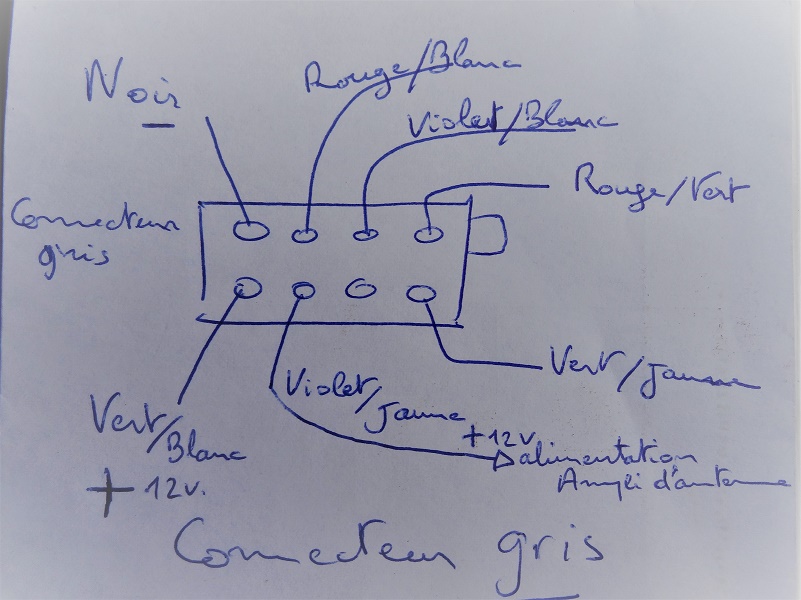 Noir
Rouge/Blanc
Violet/Blanc
Rouge/Vert
Connecteur
gris
Vert/Jaune
Violet/
Jaune
Vert/
Blanc
+ 12v.
+12v
alimentation
Ampli d'antenne
Connecteur gris